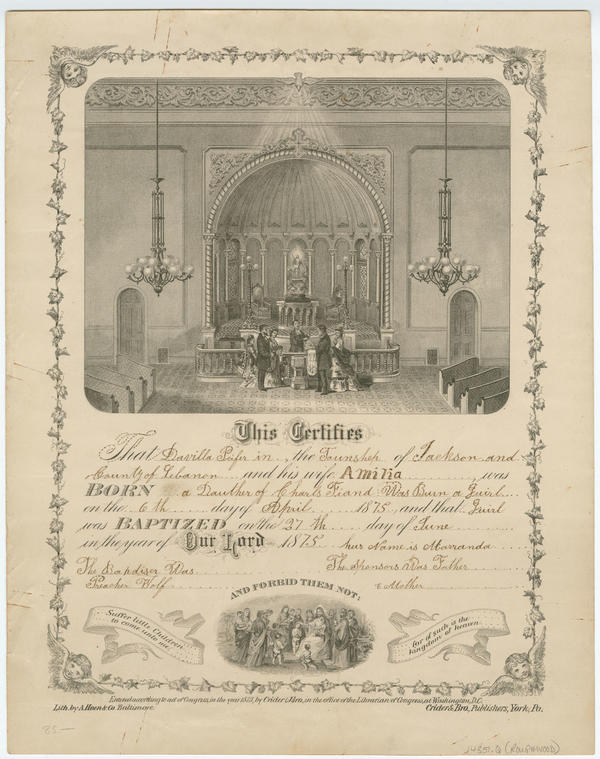 This Certifies
That Davilla Peifer in the Tounshep of Jackson and
County of Lebanon and his wife Amilia was
BORN a Dauther of Charls Feand Was Burn a Guirl
on the 6 th day of April 1875 and that Guirl
was BAPTIZED on the 27 th day of June
in the year of Our Lord 1875 hur Name is Marranda
The Bapdiser Was The Sponsors Was Father
Preacher Wolf & Mother
AND FORBID THEM NOT:
Suffer little Children
to come unto me
for of such is the
kingdom of heaven.
Entered according to act of Congress, in the year 1873, by Crider & Bro., in the office of the Librarian of Congress, at Washington, D.C.
Lith. by A. Hoen & Co. Baltimore. Crider & Bro., Publishers, York, Pa.
85—
(ROUGHWOOD)